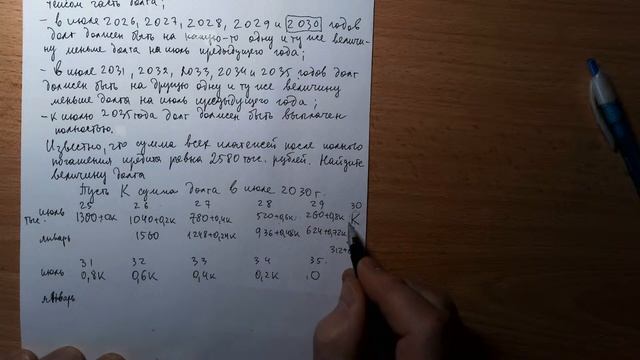 тейсом часть долга;
– в июле 2026, 2027, 2028, 2029 и 2030 годов
долг должен быть на какую-то одну и ту же величи-
ну меньше долга на июль предыдущего года;
– в июле 2031, 2032, 2033, 2034 и 2035 годов долг
должен быть на другую одну и ту же величину
меньше долга на июль предыдущего года;
– к июлю 2035 года долг должен быть выплачен
полностью.
Известно, что сумма всех платежей после полного
погашения кредита равна 2580 тыс. рублей. Найдите
величину долга
Пусть K сумма долга в июле 2030 г.
25 26 27 28 29 30
июль 1300+0K 1040+0,2K 780+0,4K 520+0,6K 260+0,8K K
тыс.
январь 1560 1248+0,24K 936+0,48K 624+0,72K
312+
31 32 33 34 35.
июль 0,8K 0,6K 0,4K 0,2K 0
январь